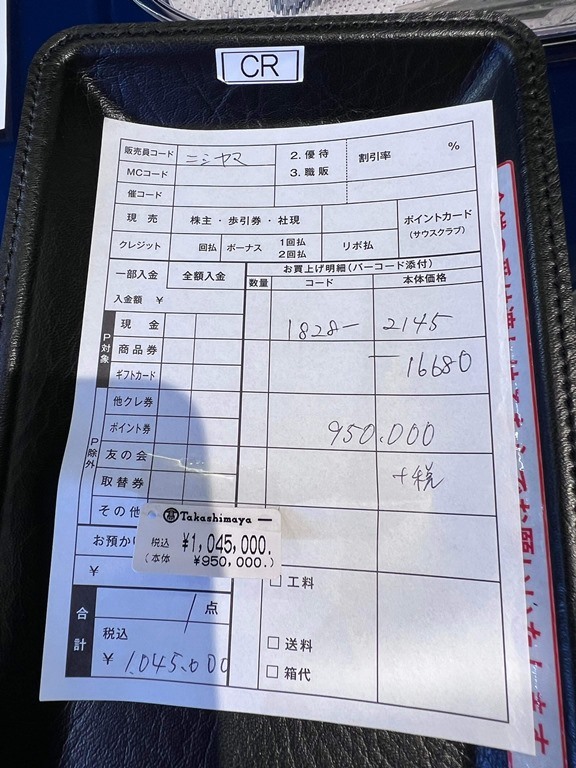 CR
販売員コード ニシヤマ
MCコード
催コード
2. 優待
3. 職販
割引率 %
現売 株主・歩引券・社現
ポイントカード
(サウスクラブ)
クレジット 回払 ボーナス 1回払 2回払 リボ払
一部入金 全額入金
入金額 ¥
お買上げ明細(バーコード添付)
数量 コード 本体価格
P対象
現金
商品券
ギフトカード
P除外
他クレ券
ポイント券
友の会
取替券
その他
1828- 2145
-16680
950.000
+税
お預か
¥
Takashimaya
税込 ¥1,045,000.
(本体 ¥950,000.)
合計
1点
税込
¥1.045.000
□工料
□送料
□箱代